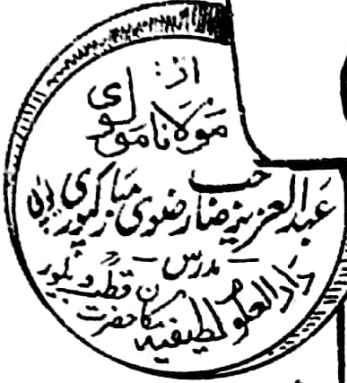 از:
مولانا مولوی
عبدالعزیز صاحب رضوی مبارکپوری
مدرس
دارالعلوم لطیفیہ مکان حضرت قطب ویلور